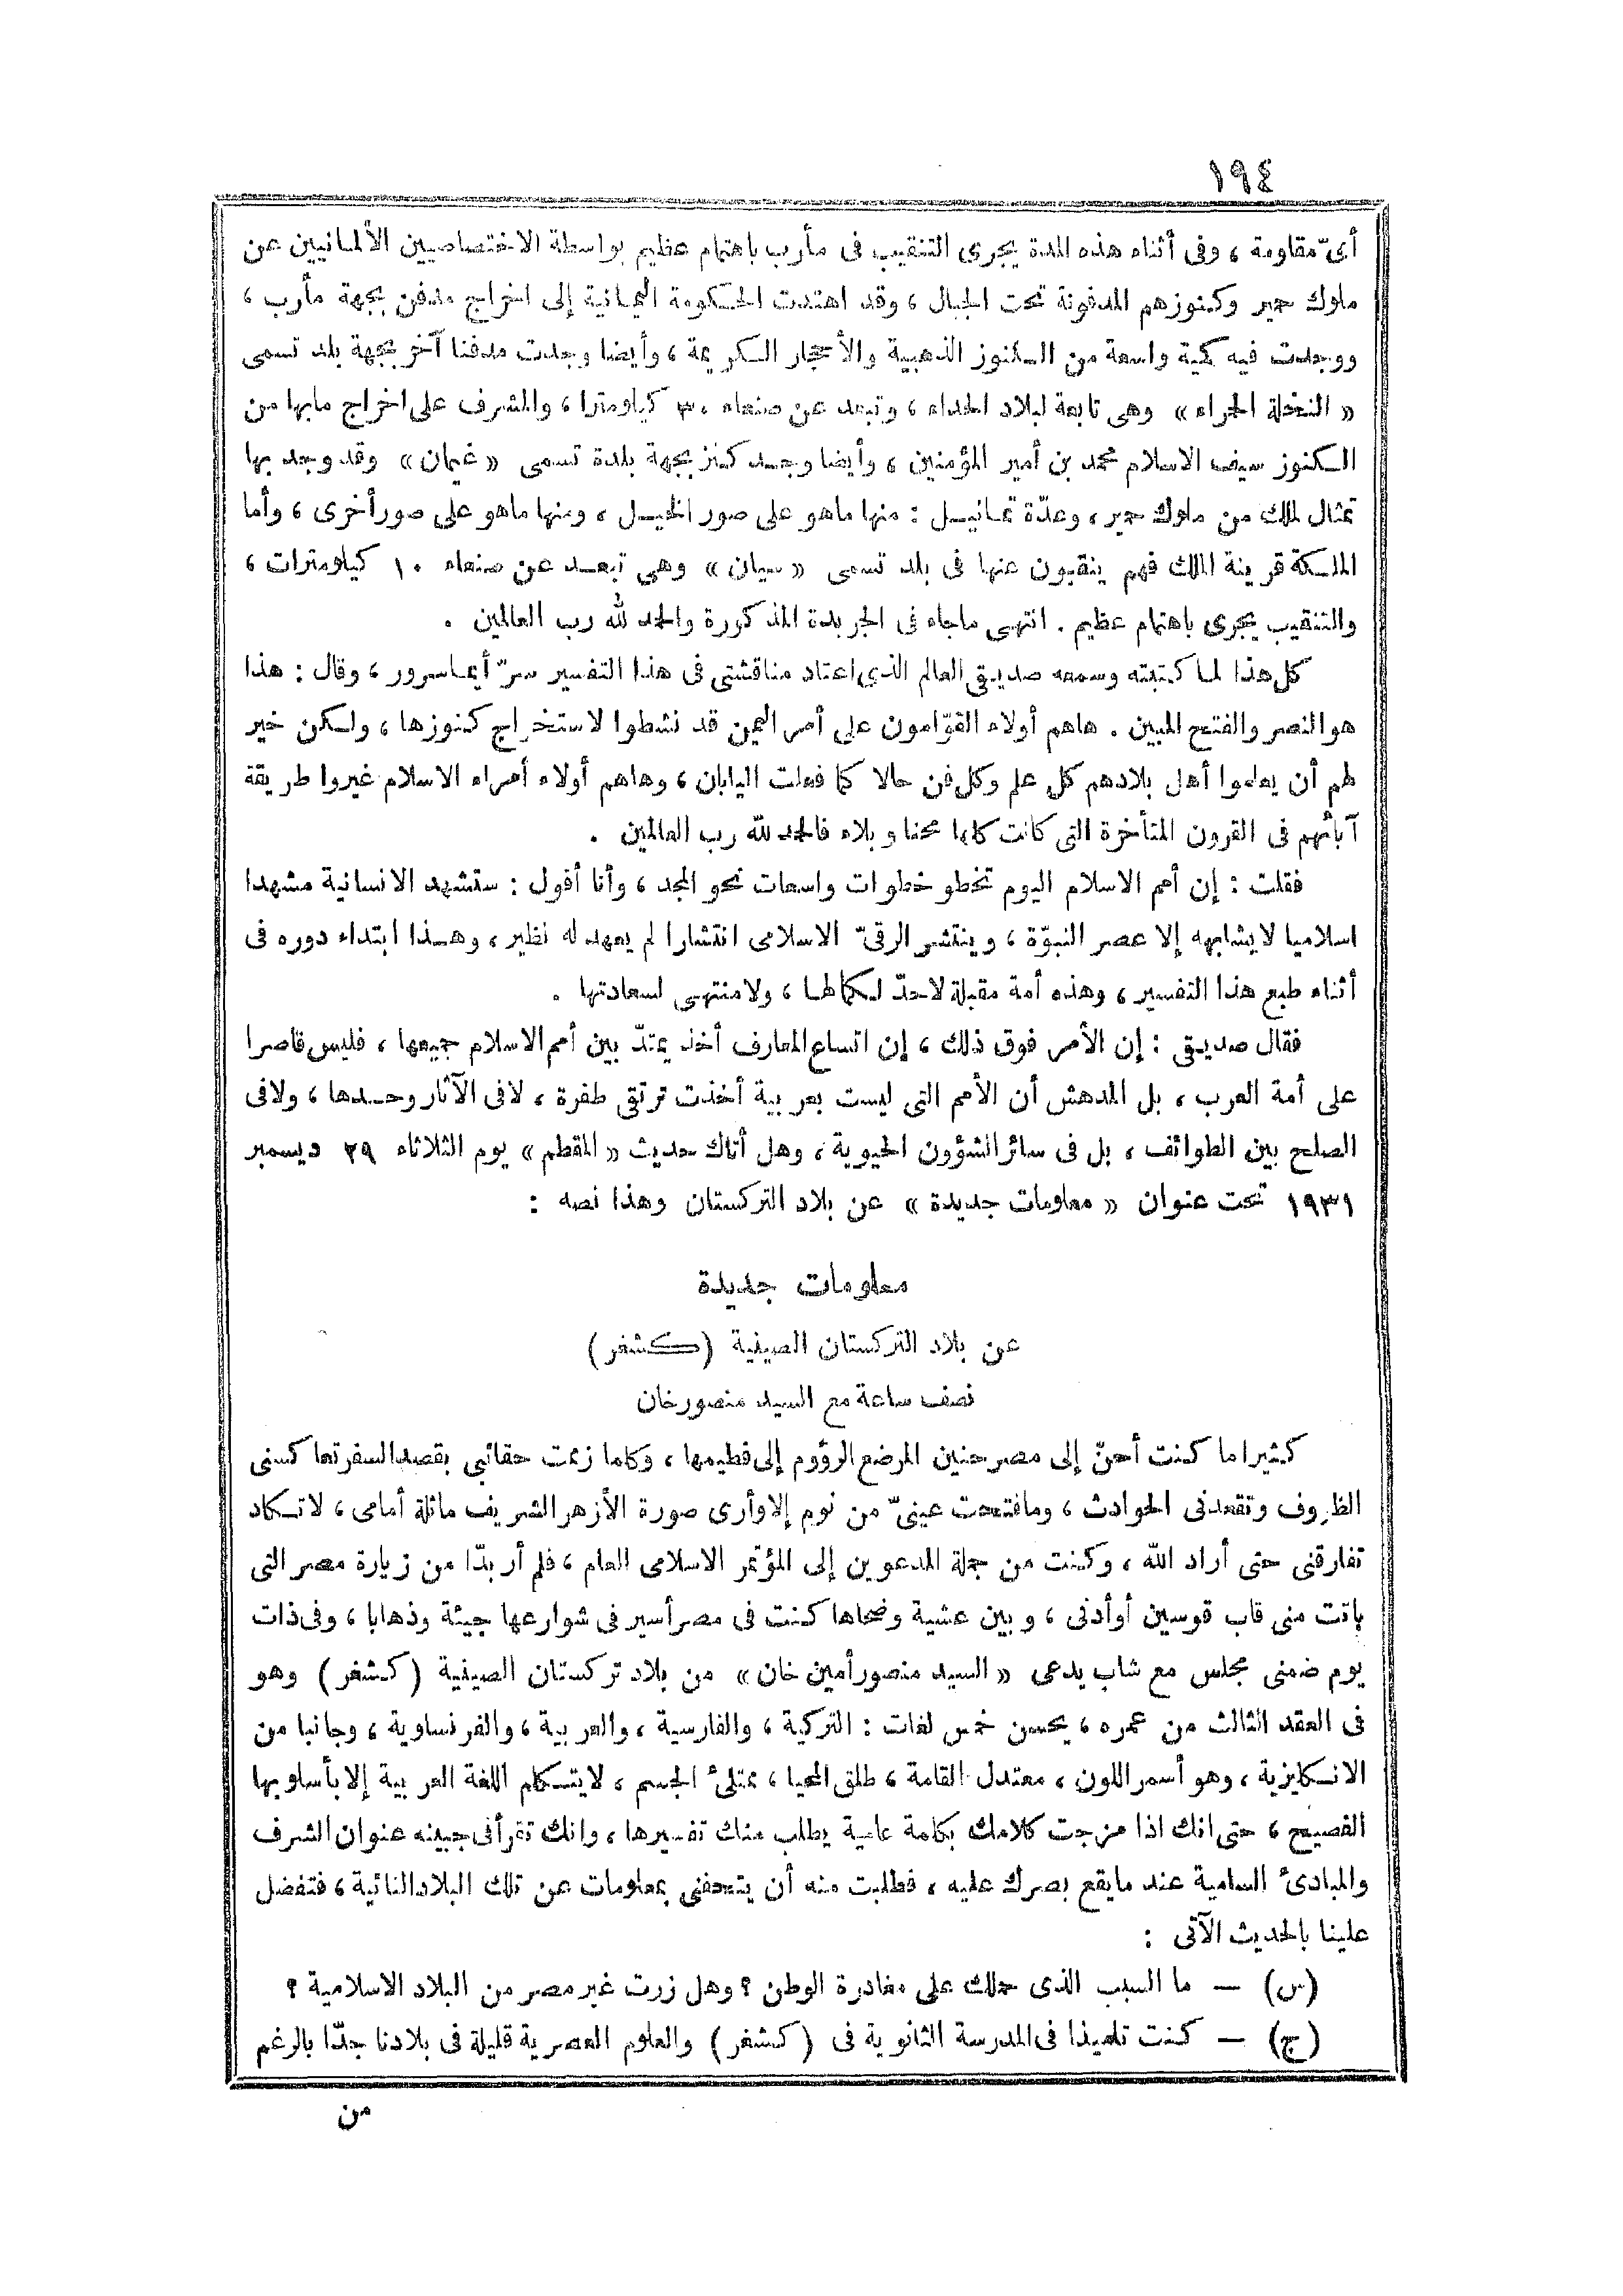 ١٩٤
أىّ مقاومة ، وفى أثناء هذه المدة يجرى التنقيب فى مأرب باهتمام عظيم بواسطة الاختصاصيين الألمانيين عن
ملوك حمير وكنوزهم المدفونة تحت الجبال ، وقد اهتدت الحكومة اليمانية إلى اخراج مدفن بجهة مأرب ،
ووجدت فيه كمية واسعة من الكنوز الذهبية والأحجار الكريمة ، وأيضا وجدت مدفنا آخر بجهة بلد تسمى
« النخلة الحمراء » وهى تابعة لبلاد الحداء ، وتبعد عن صنعاء ٣٠ كيلومترا ، والمشرف على اخراج مابها من
الكنوز سيف الاسلام محمد بن أمير المؤمنين ، وأيضا وجد كنز بجهة بلدة تسمى « غيمان » وقد وجد بها
تمثال لملك من ملوك حمير ، وعدّة تماثيل : منها ماهو على صور الخيل ، ومنها ماهو على صور أخرى ، وأما
الملكة قرينة الملك فهم ينقبون عنها فى بلد تسمى « سيان » وهى تبعد عن صنعاء ١٠ كيلومترات ،
والتنقيب يجرى باهتمام عظيم . انتهى ماجاء فى الجريدة المذكورة والحمد لله رب العالمين .
كل هذا لما كتبته وسمعه صديقى العالم الذى اعتاد مناقشتى فى هذا التفسير سرّ أيما سرور ، وقال : هذا
هو النصر والفتح المبين . هاهم أولاء القوّامون على أمر اليمن قد نشطوا لاستخراج كنوزها ، ولكن خير
لهم أن يعلموا أهل بلادهم كل علم وكل فن حالا كما فعلت اليابان ، وهاهم أولاء أمراء الاسلام غيروا طريقة
آبائهم فى القرون المتأخرة التى كانت كلها محنا وبلاء فالحمد لله رب العالمين .
فقلت : إن أمم الاسلام اليوم تخطو خطوات واسعات نحو المجد ، وأنا أقول : ستشهد الانسانية مشهدا
اسلاميا لايشابهه إلا عصر النبوّة ، وينتشر الرقىّ الاسلامى انتشارا لم يعهد له نظير ، وهذا ابتداء دوره فى
أثناء طبع هذا التفسير ، وهذه أمة مقبلة لاحدّ لكمالها ، ولا منتهى لسعادتها .
فقال صديقى : إن الأمر فوق ذلك ، إن اتساع المعارف أخذ يمتدّ بين أمم الاسلام جميعها ، فليس قاصرا
على أمة العرب ، بل المدهش أن الأمم التى ليست بعربية أخذت ترتقى طفرة ، لافى الآثار وحدها ، ولافى
الصلح بين الطوائف ، بل فى سائر الشؤون الحيوية ، وهل أتاك حديث « المقطم » يوم الثلاثاء ٢٩ ديسمبر
١٩٣١ تحت عنوان « معلومات جديدة » عن بلاد التركستان وهذا نصه :
معلومات جديدة
عن بلاد التركستان الصينية (كشغر)
نصف ساعة مع السيد منصور خان
كثيرا ما كنت أحنّ إلى مصر حنين المرضع الرؤوم إلى فطيمها ، وكلما زممت حقائبى بقصد السفر تعاكسنى
الظروف وتقعدنى الحوادث ، ومافتحت عينىّ من نوم إلا وأرى صورة الأزهر الشريف ماثلة أمامى ، لاتكاد
تفارقنى حتى أراد الله ، وكنت من جملة المدعوين إلى المؤتمر الاسلامى العام ، فلم أر بدّا من زيارة مصر التى
باتت منى قاب قوسين أو أدنى ، وبين عشية وضحاها كنت فى مصر أسير فى شوارعها جيئة وذهابا ، وفى ذات
يوم ضمنى مجلس مع شاب يدعى « السيد منصور أمين خان » من بلاد تركستان الصينية (كشغر) وهو
فى العقد الثالث من عمره ، يحسن خمس لغات : التركية ، والفارسية ، والعربية ، والفرنساوية ، وجانبا من
الانكليزية ، وهو أسمر اللون ، معتدل القامة ، طلق المحيا ، ممتلئ الجسم ، لايتكلم اللغة العربية إلا بأسلوبها
الفصيح ، حتى انك اذا مزجت كلامك بكلمة عامية يطلب منك تفسيرها ، وانك تقرأ فى جبينه عنوان الشرف
والمبادئ السامية عند مايقع بصرك عليه ، فطلبت منه أن يتحفنى بمعلومات عن تلك البلاد النائية ، فتفضل
علينا بالحديث الآتى :
(س) — ما السبب الذى حملك على مغادرة الوطن ؟ وهل زرت غير مصر من البلاد الاسلامية ؟
(ج) — كنت تلميذا فى المدرسة الثانوية فى (كشغر) والعلوم العصرية قليلة فى بلادنا جدّا بالرغم
من